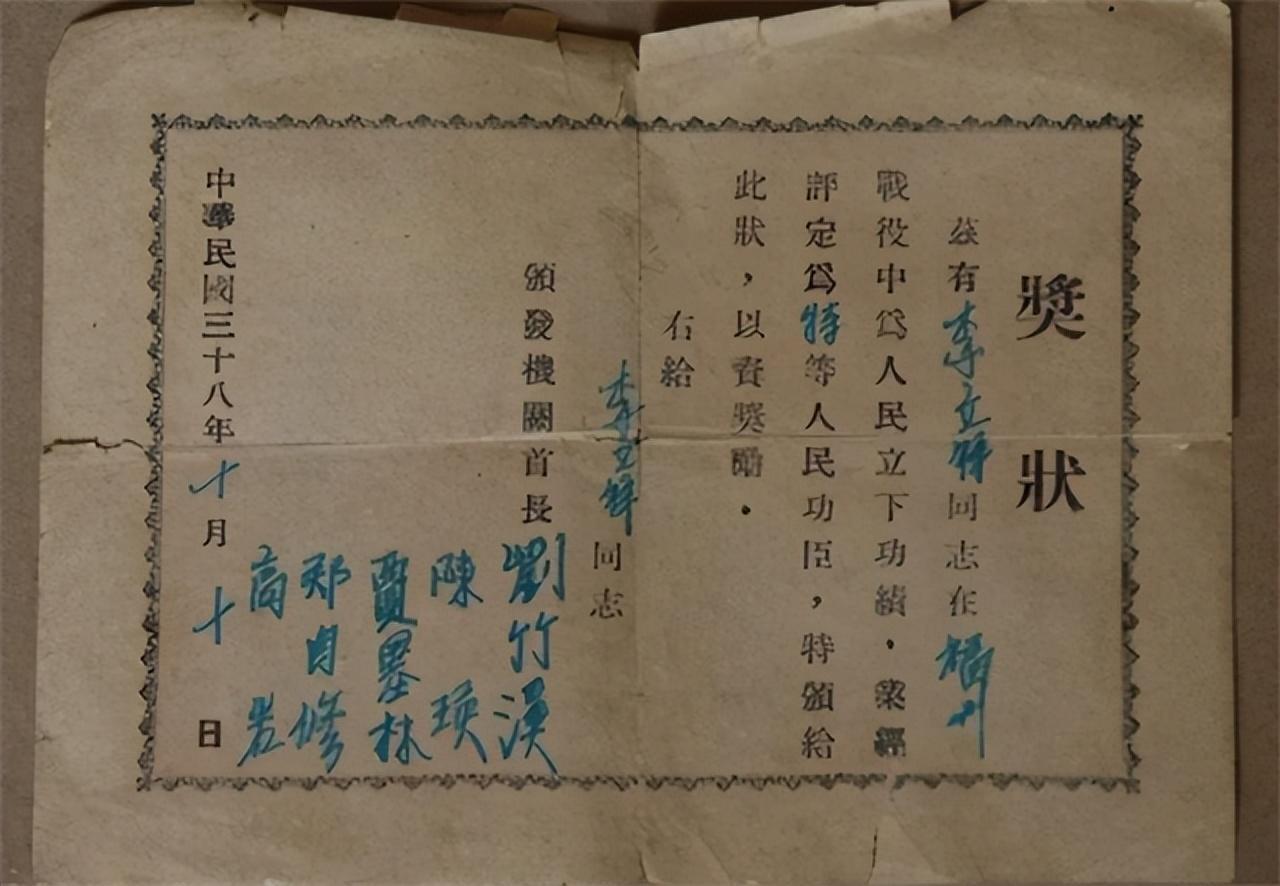 獎狀
茲有李立祥同志在福州
戰役中爲人民立下功績．業經
評定爲特等人民功臣，特頒給
此狀，以資獎勵．
右給
李立祥同志
頒發機關首長 劉竹溪
陳瑛
賈墨林
郑自修
高岩
中華民國三十八年十月十日